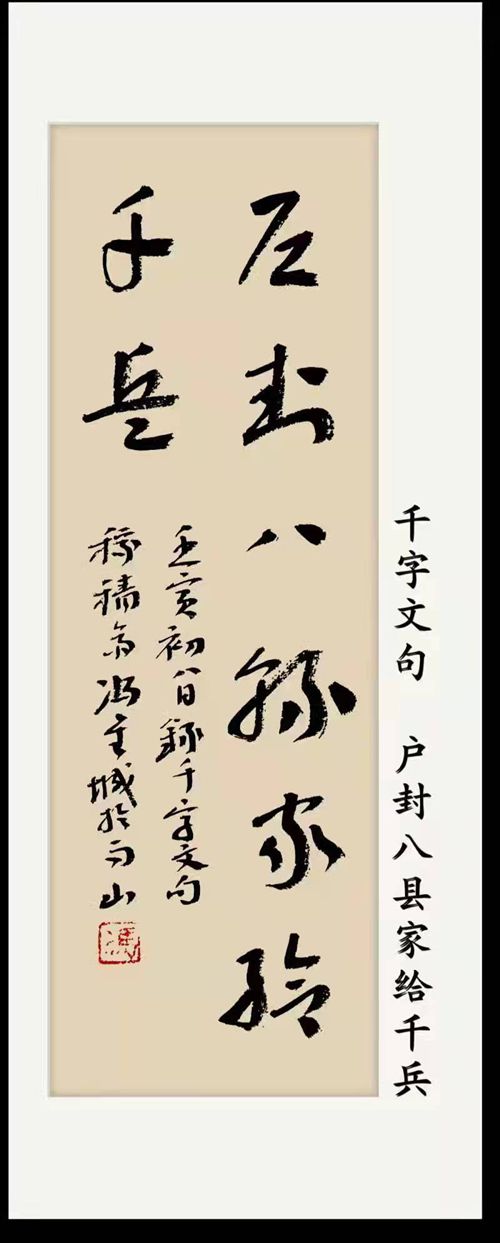 户封八縣家給
千兵
壬寅初八日錄千字文句
千字文句 户封八县家给千兵
馮